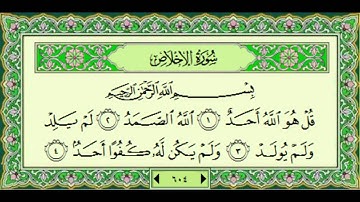 سُورَةُ الإِخْلَاصِ
بِسْمِ اللَّهِ الرَّحْمَٰنِ الرَّحِيمِ
قُلْ هُوَ اللَّهُ أَحَدٌ ١ اللَّهُ الصَّمَدُ ٢ لَمْ يَلِدْ
وَلَمْ يُولَدْ ٣ وَلَمْ يَكُن لَّهُ كُفُوًا أَحَدٌ ٤
٦٠٤